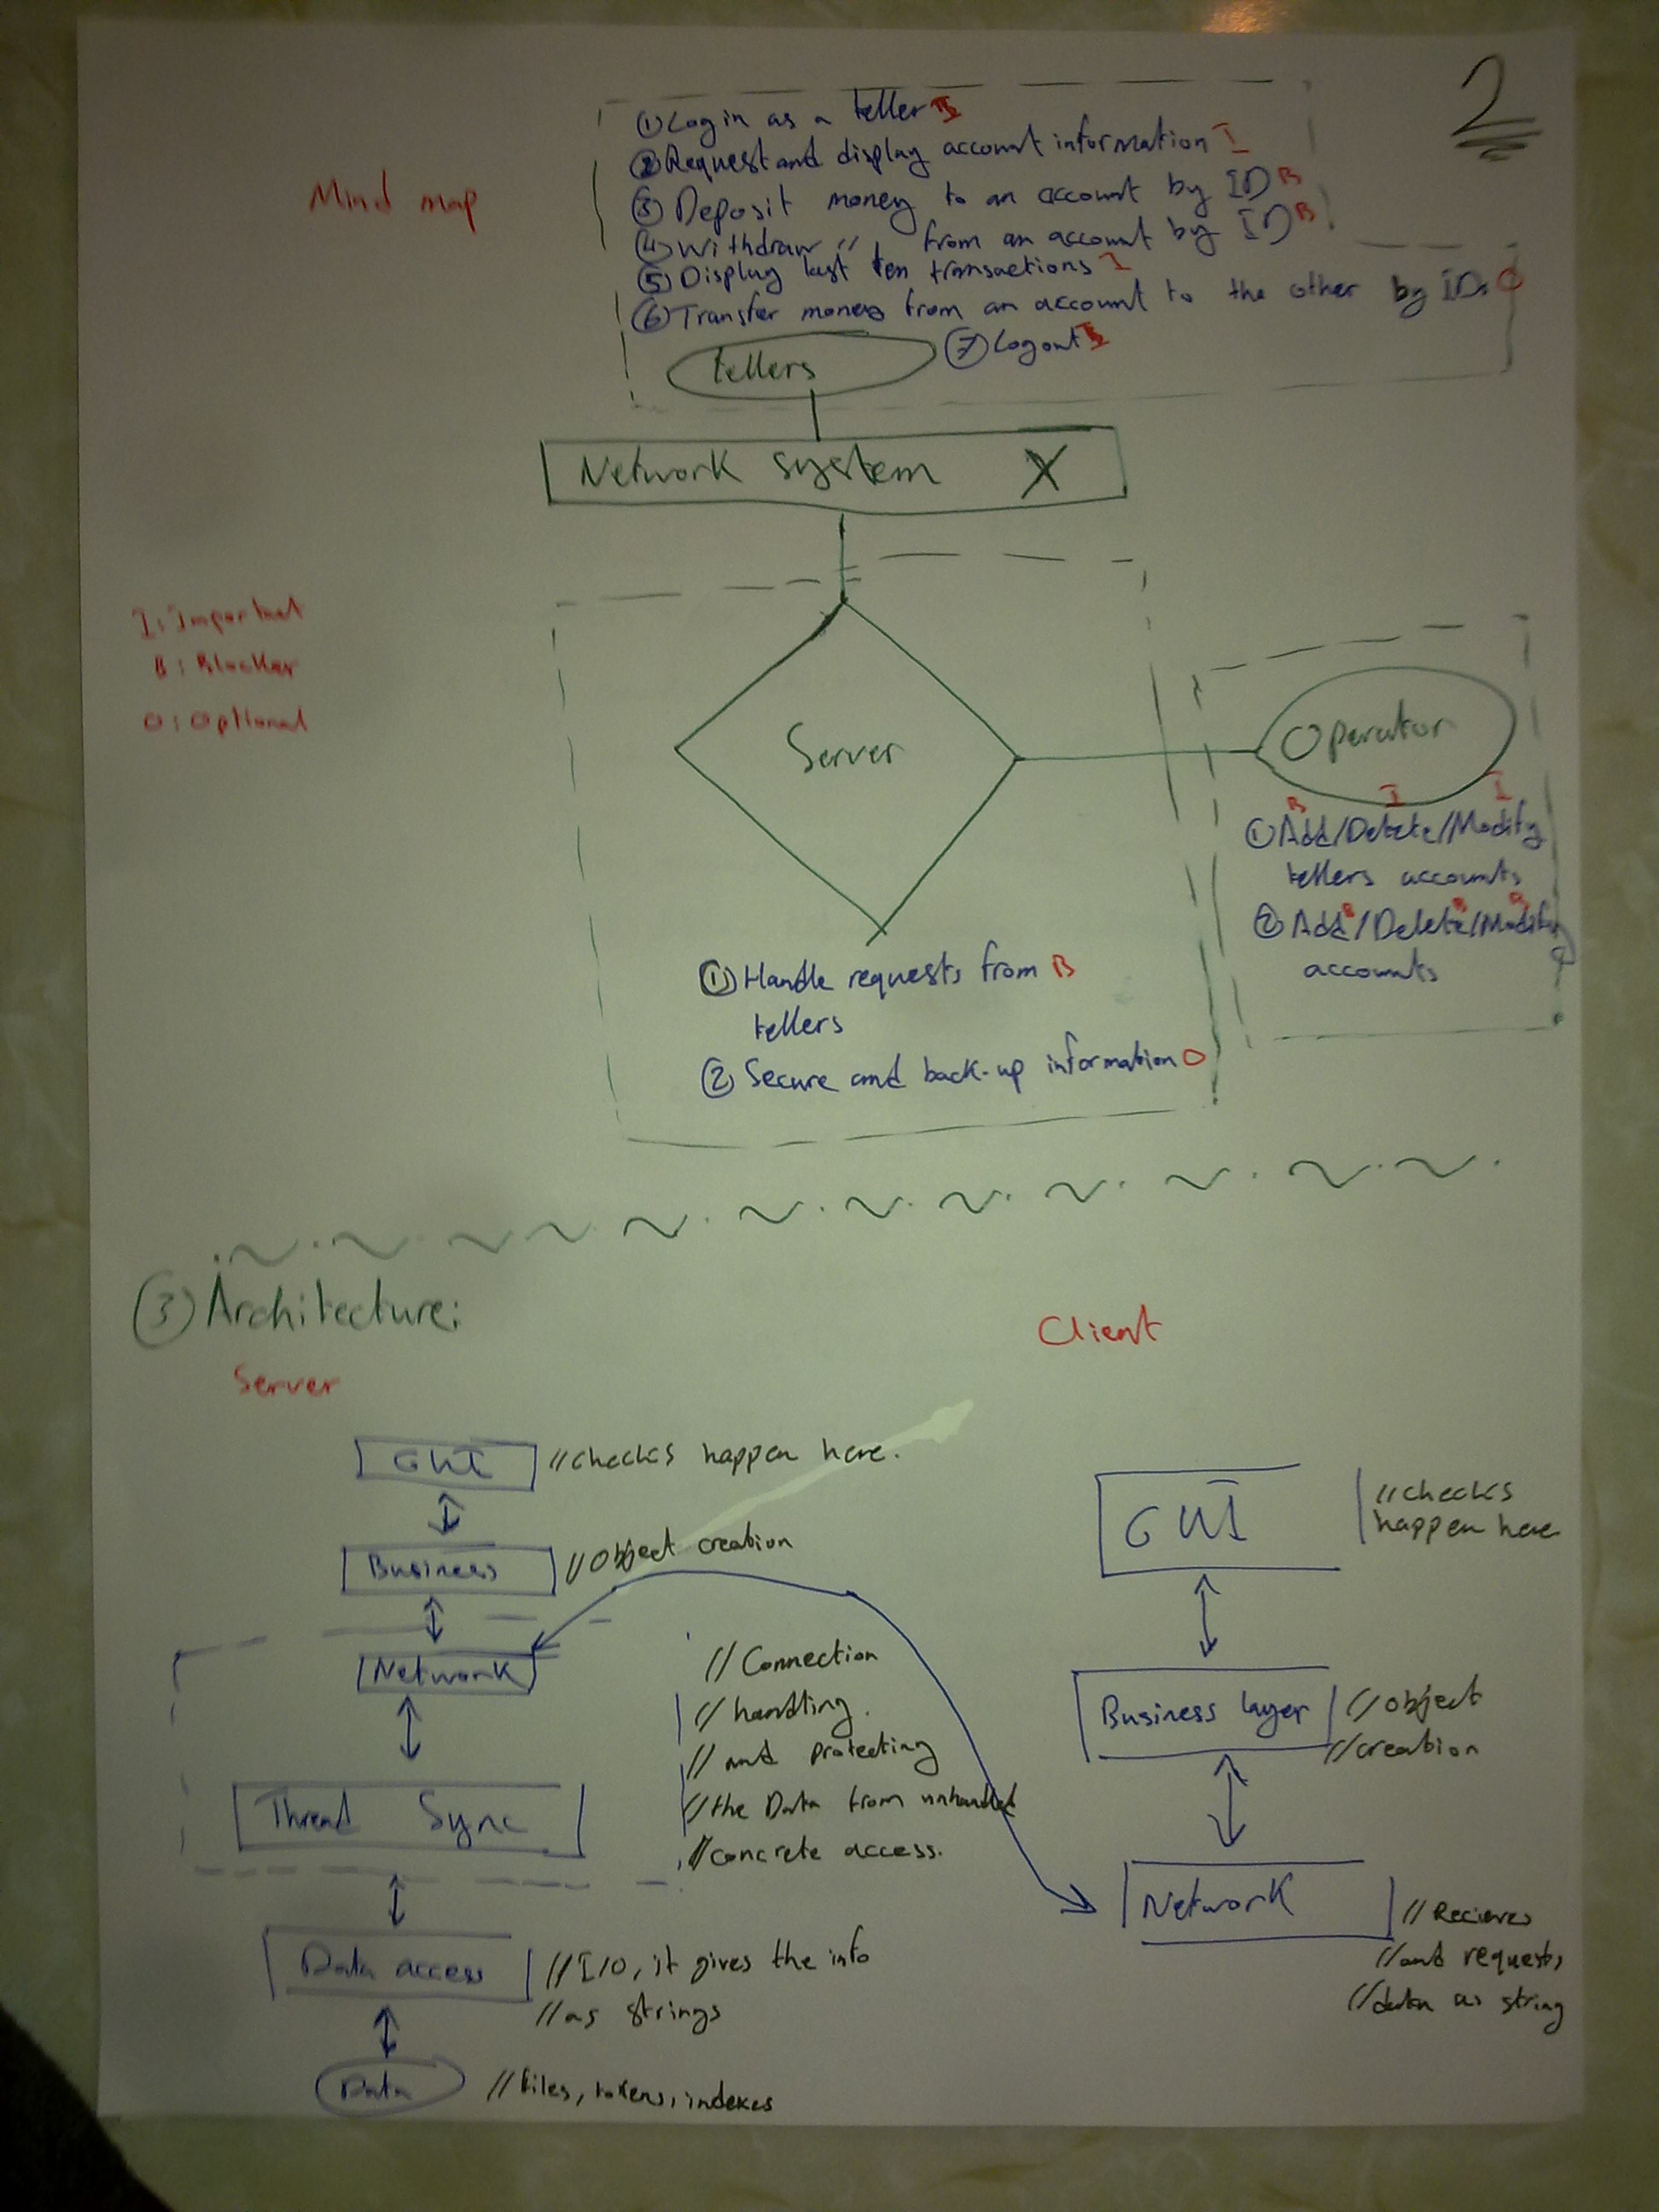 2
Mind map
① Login as a teller B
② Request and display account information I
③ Deposit money to an account by ID B
④ Withdraw 〃 from an account by ID B
⑤ Display last ten transactions I
⑥ Transfer money from an account to the other by IDs O
⑦ Logout B
tellers
Network system X
I: Important
B: Blocker
O: Optional
Server
Operator
B I I
① Add/Delete/Modify
tellers accounts
B B B
② Add/Delete/Modify
accounts
① Handle requests from B
tellers
② Secure and back-up information O
③ Architecture:
Server
GUI //checks happen here.
Business //Object creation
Network
Thread Sync
// Connection
// handling.
// and protecting
// the Data from unhandled
// concrete access.
Data access //I/O, it gives the info
//as strings
Data //files, tokens, indexes
Client
GUI //checks
happen here
Business layer //object
//creation
Network //Recieves
//and requests
//data as string